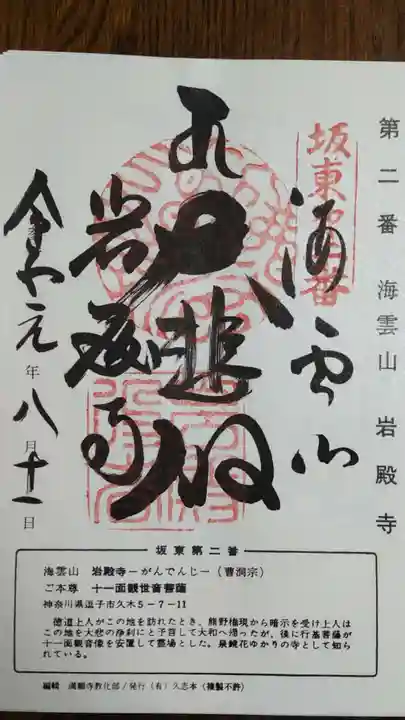 第二番 海雲山 岩殿寺
坂東第二番
海雲山
大悲殿
岩殿寺
令和元年八月十一日
坂東第二番
海雲山 岩殿寺ーがんでんじー（曹洞宗）
ご本尊 十一面観世音菩薩
神奈川県逗子市久木5-7-11
徳道上人がこの地を訪れたとき、熊野権現から暗示を受け上人は
この地を大悲の浄刹にと予言して大和へ帰ったが、後に行基菩薩が
十一面観音像を安置して霊場とした。泉鏡花ゆかりの寺として知ら
れている。
編輯 満願寺教化部/発行(有)久志本〈複製不許〉